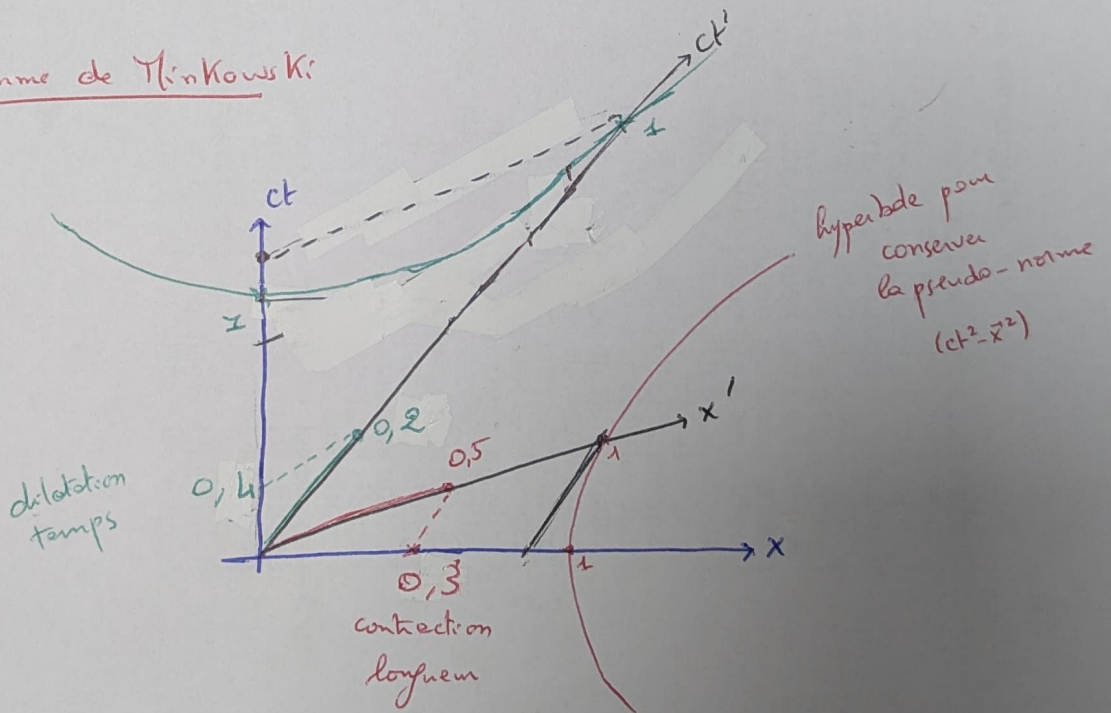 me de Minkowski
ct'
1
ct
hyperbole pour
conserver
la pseudo-norme
(ct²-x⃗²)
1
x'
0,2
0,5
1
dilatation
temps
0,4
x
1
0,3
contraction
longueur